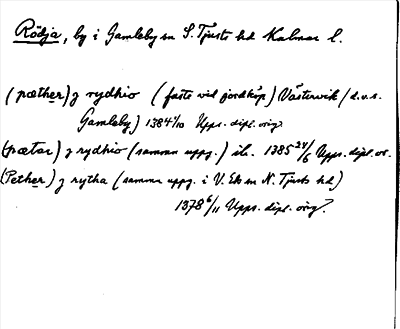 Rödja, by i Gamleby sn S. Tjusts hd Kalmar l.
(pæther) j rydhio (faste vid jordköp) Västervik (d.v.s.
Gamleby) 1384 1/10 Upps. dipl. orig.
(pætar) j rydhio (samma uppg.) ib. 1385 24/6 Upps. dipl. or.
(Pether) j rytha (samma uppg. i V. Eds sn N. Tjusts hd)
1378 6/11 Upps. dipl. orig.